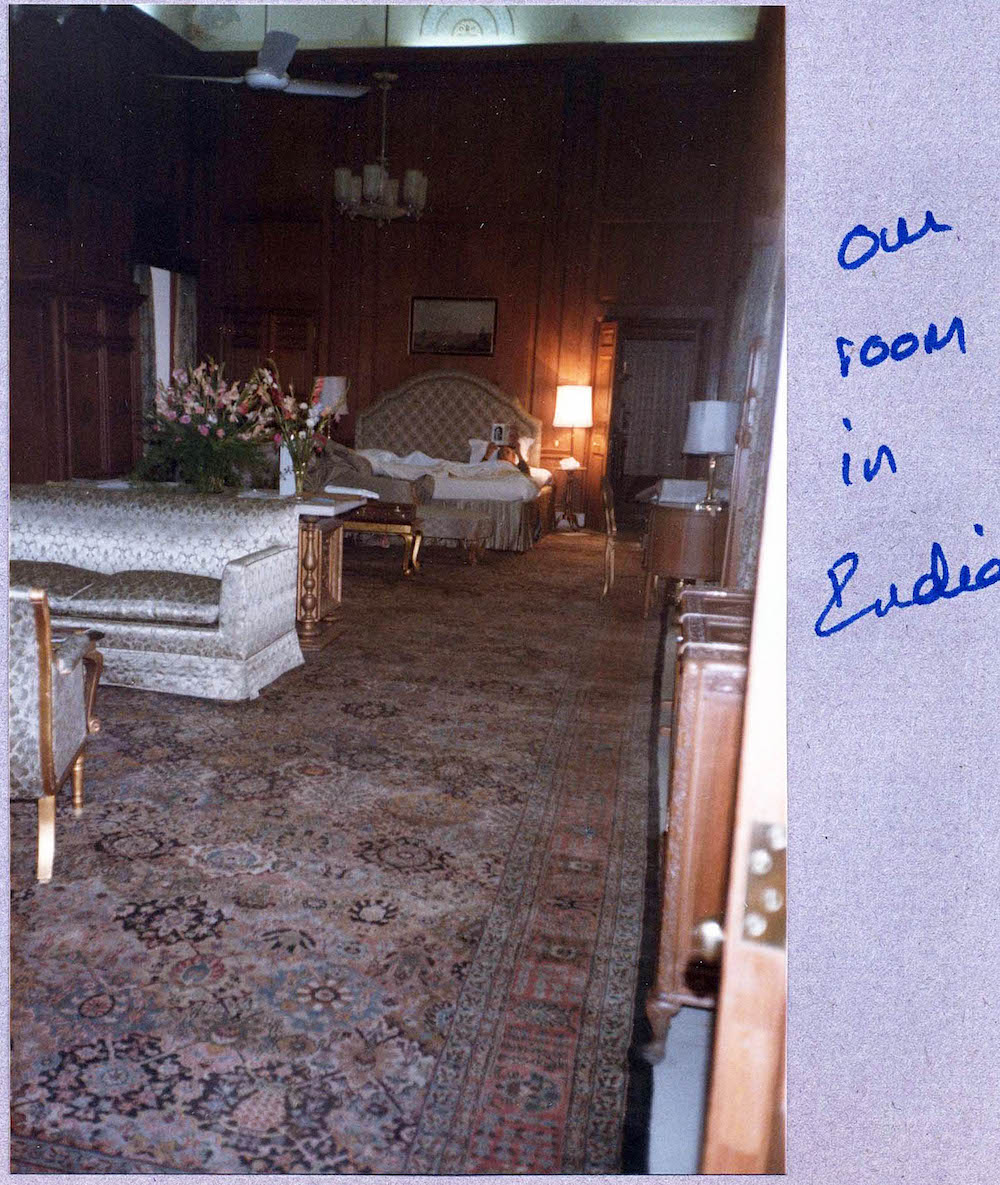 our
room
in
India